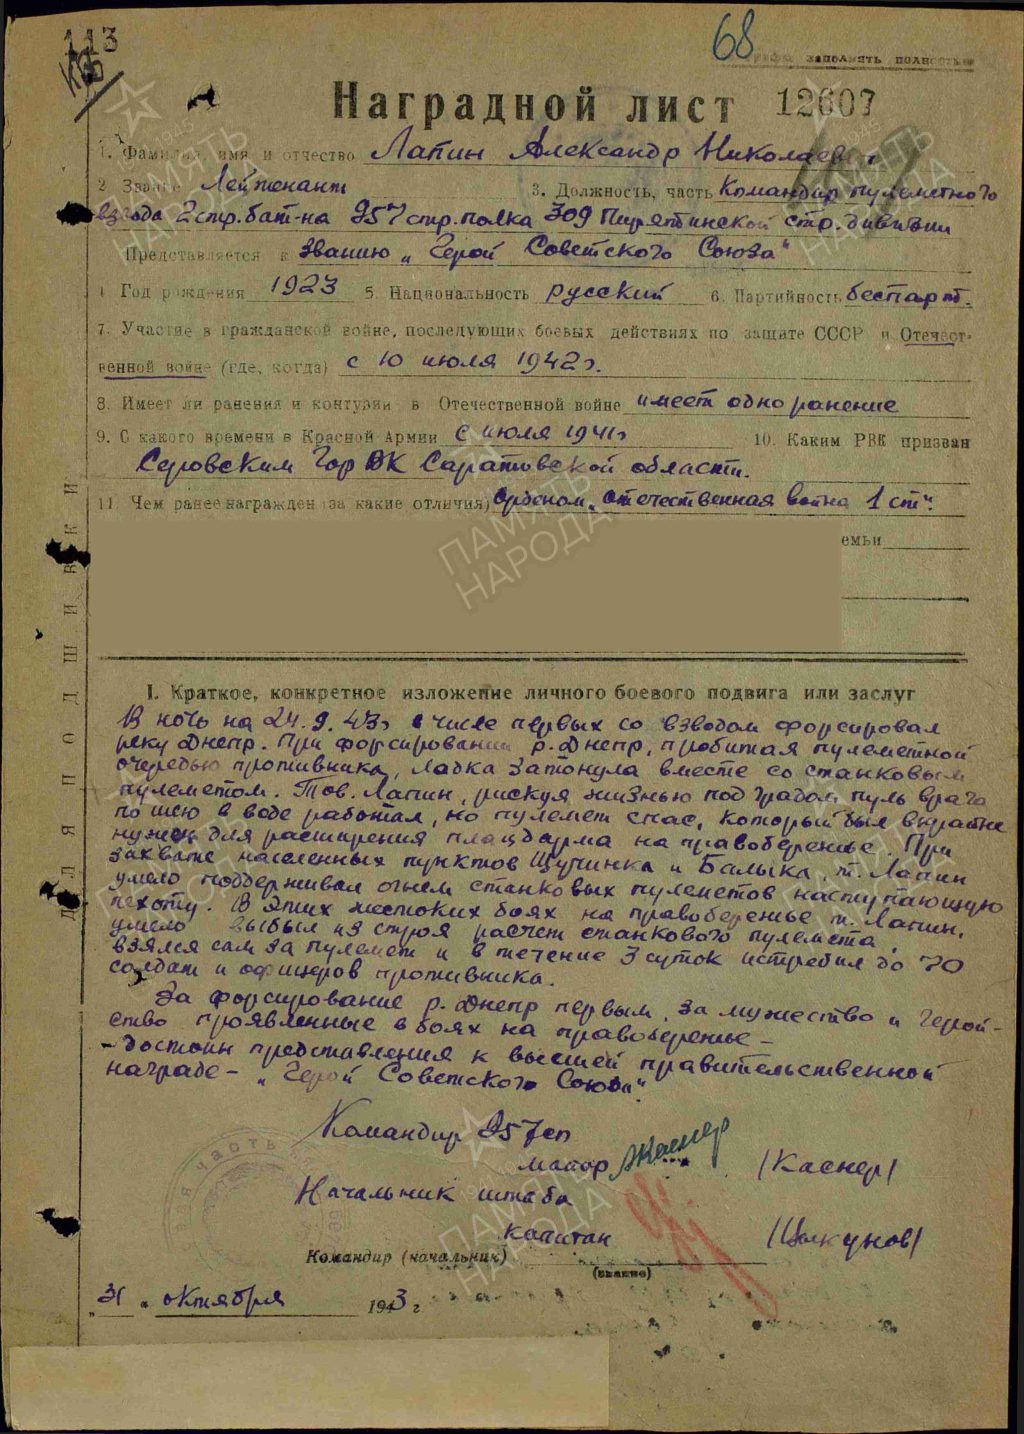 113
68
заполнять полностью
Наградной лист 12607
1. Фамилия, имя и отчество Лапин Александр Николаевич
2 Звание Лейтенант 3. Должность, часть Командир пулеметного
взвода 2 стр. бат-на 957 стр. полка 309 Пирятинской стр. дивизии
Представляется к званию „Герой Советского Союза"
4 Год рождения 1923 5. Национальность русский 6. Партийность беспарт.
7. Участие в гражданской войне, последующих боевых действиях по защите СССР и Отечест-
венной войне (где, когда) с 10 июля 1942 г.
8. Имеет ли ранения и контузии в Отечественной войне имеет одно ранение
9. С какого времени в Красной Армии с июля 1941 г 10. Каким РВК призван
Серовским Гор ВК Саратовской области.
11. Чем ранее награжден (за какие отличия) Орденом „Отечественная война 1 ст".
емьи
ДЛЯ ПОДШИВКИ
I. Краткое, конкретное изложение личного боевого подвига или заслуг
В ночь на 24.9.43г в числе первых со взводом форсировал
реку Днепр. При форсировании р. Днепр, пробитая пулеметной
очередью противника, лодка затонула вместе со станковым
пулеметом. Тов. Лапин, рискуя жизнью под градом пуль врага
по шею в воде работал, но пулемет спас, который был вкрайне
нужен для расширения плацдарма на правобережье. При
захвате населенных пунктов Щучинка и Балыка, т. Лапин
умело поддерживал огнем станковых пулеметов наступающую
пехоту. В этих жестоких боях на правобережье т. Лапин,
умело выбыл из строя расчет станкового пулемета,
взялся сам за пулемет и в течение 3 суток истребил до 70
солдат и офицеров противника.
За форсирование р. Днепр первым, за мужество и герой-
ство проявленные в боях на правобережье –
– достоин представления к высшей правительственной
награде – „Герой Советского Союза".
Командир 957 сп
майор Каснер /Каснер/
Начальник штаба
капитан /Цыкунов/
Командир (начальник)
(звание)
„31" октября 1943 г
ПАМЯТЬ
НАРОДА